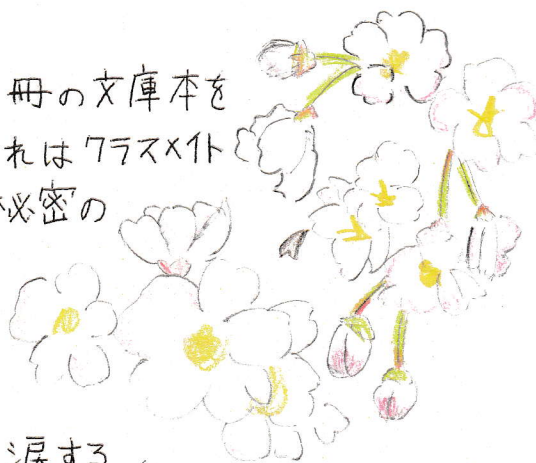 冊の文庫本を
れはクラスメイト
秘密の
涙する